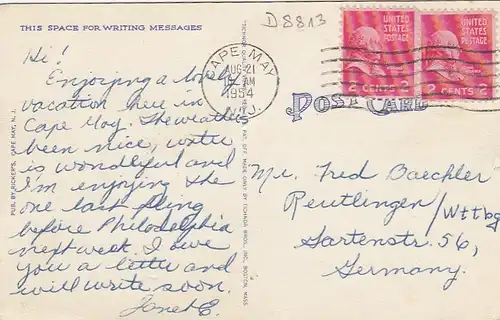 THIS SPACE FOR WRITING MESSAGES
D 8813
UNITED STATES POSTAGE
2 CENTS 2
UNITED STATES POSTAGE
2 CENTS 2
CAPE MAY
AUG 21
AM
1954
N.J.
POST CARD
Hi!
Enjoying a lovely
vacation here in
Cape May. The weather's
been nice, water
is wonderful and
I'm enjoying the
one last fling
before Philadelphia
next week. I owe
you a letter and
will write soon.
Janet E.
PUB. BY RICKER'S, CAPE MAY, N. J.
TICHNOR BROS., INC., BOSTON, MASS.
Mr. Fred Baechler
Reutlingen/Wttbg
Gartenstr. 56,
Germany.